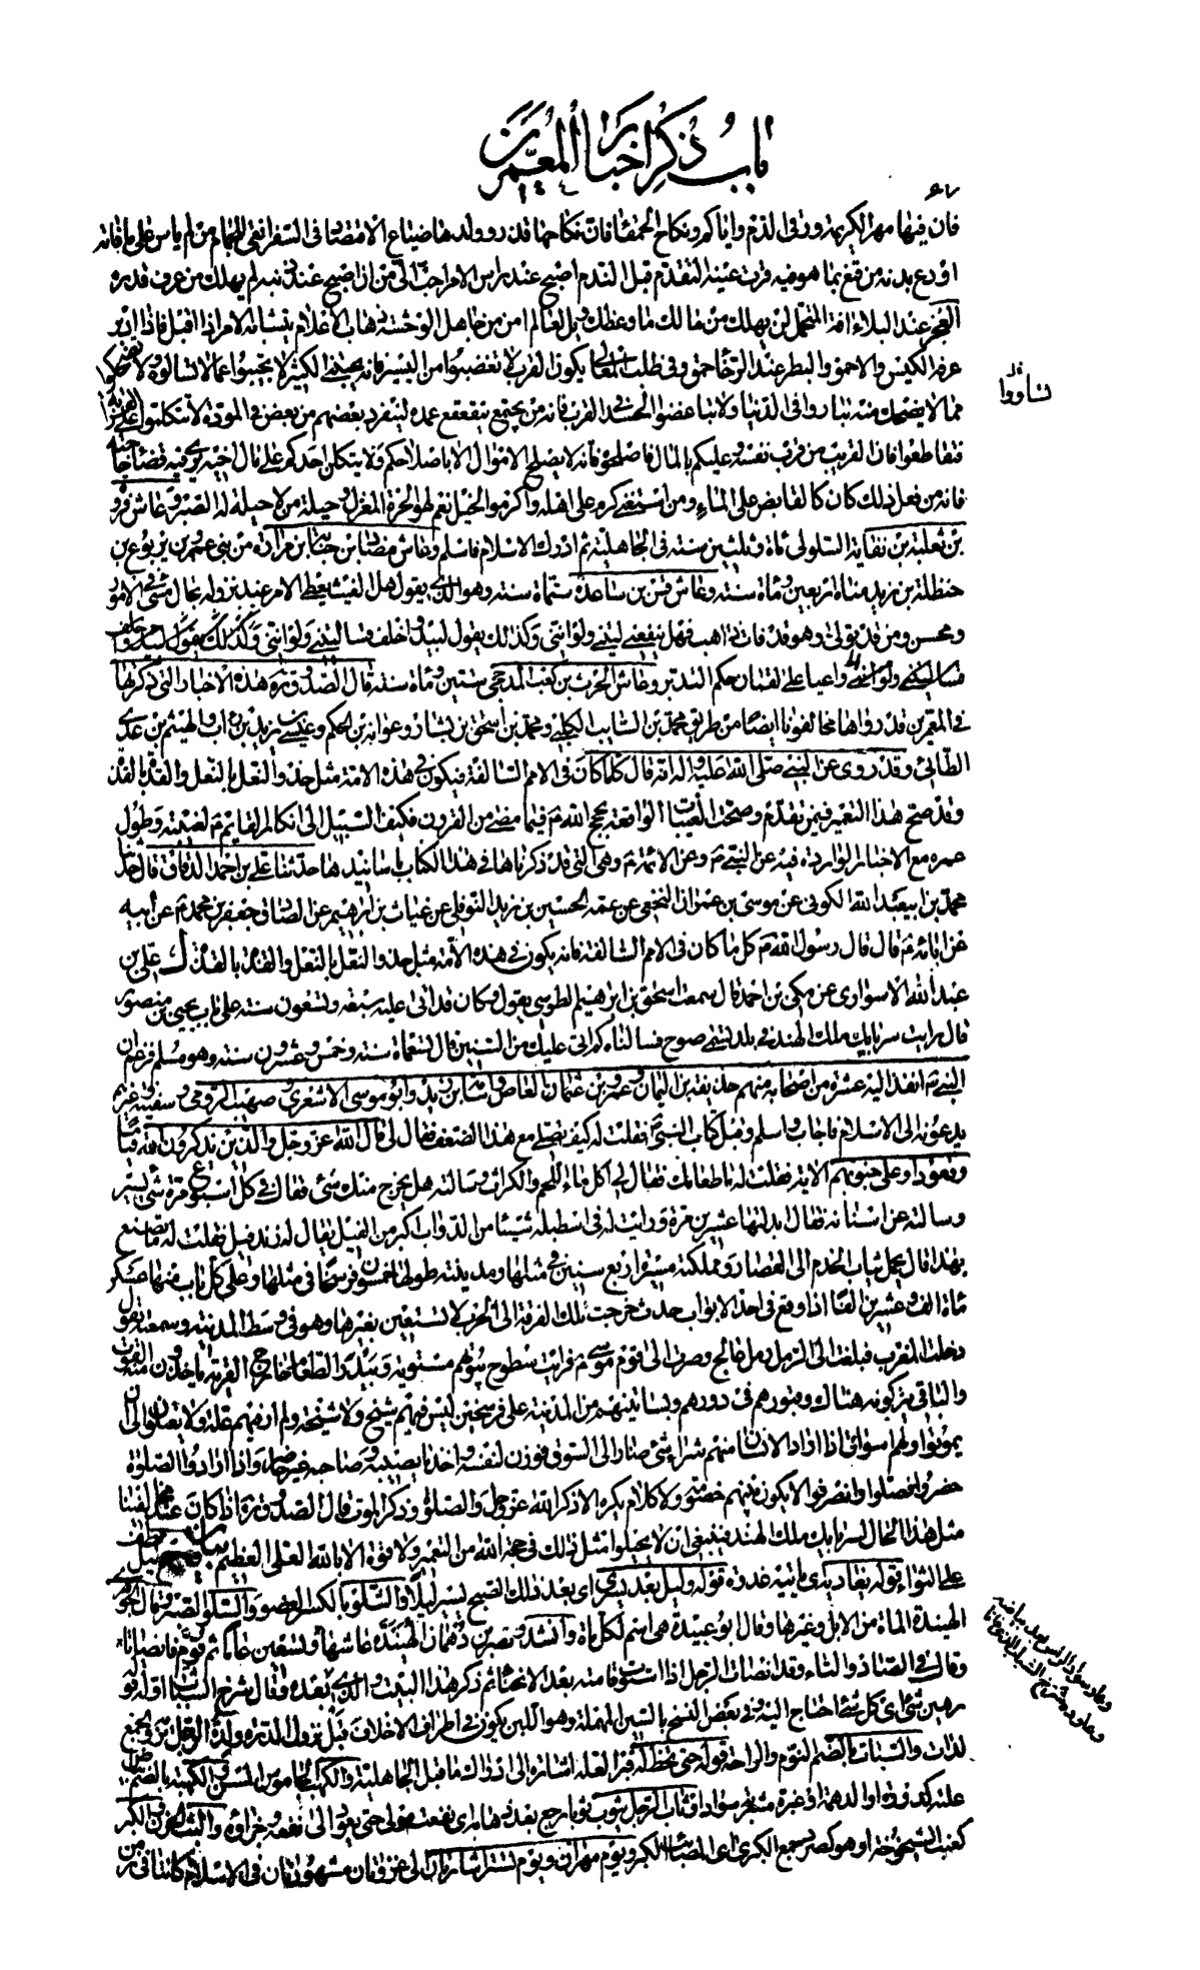 باب ذكر اخبار المعمرين
فان فيها مهر الكريمة ورقى الدم واياكم ونكاح الحمقاء فان نكاحها قذر وولدها ضياع الاقتصاد في السفر ابقى للجمام من لم ياس على ما فاته
اودع بدنه من قنع بما هو فيه قرت عينه التقدم قبل الندم اصبح عند راس الامر احب الى من ان اصبح عند ذنبه لم يهلك من عرف قدره
العجز عند البلاء افة المتحمل لن يهلك من مالك ما وعظك ويل لعالم امن من جاهل الوحشة ذهاب الاعلام يتشابه الامر اذا اقبل فاذا ادبر
عرفه الكيس والاحمق والبطر عند الرخاء حمق وفي طلب المعالى يكون القرب لا تغضبوا من اليسير فانه يجنى الكثير لا تجيبوا عما لا تسالوه لا تضحكوا
تساووا
مما لا يضحك منه تباروا في الدنيا ولا تباغضوا الحسد في القرب فانه من يجتمع يتقعقع عمده ليتفرد بعضهم من بعض في المودة لا تتكلوا على القرابة
فتقاطعوا فان القريب من قرب نفسه وعليكم بالمال فاصلحوه فانه لا يصلح الاموال الا باصلاحكم ولا يتكلن احدكم على مال اخيه يرى فيه قضاء حاجته
فانه من فعل ذلك كان كالقابض على الماء ومن استغنى كرم على اهله واكرموا الخيل نعم لهو الحرة المغزل وحيلة من لا حيلة له الصبر وعاش فروة
بن ثعلبة بن نفاية السلولى مائة وثلثين سنة في الجاهلية ثم ادرك الاسلام فاسلم وعاش مضاد بن جنابة بن مرارة من بني عمرو بن يربوع بن
حنظلة بن زيد مناة اربعين ومائة سنة وعاش قس بن ساعدة ستمائة سنة وهو الذي يقول هل الغيث يعطى الامر عند نزوله بحال مسيء في الامور
ومحسن ومن قد تولى وهو قد فات ذاهب فهل ينفعني ليتني ولو انني وكذلك يقول لبيد واخلف قسا ليتني ولو انني وكذلك يقول لبيد واخلف
قسا ليتني ولو انني واعيا على لقمان حكم التدبر وعاش الحرث بن كعب المذحجي ستين ومائة سنة قال الصدوق ره هذه الاخبار التي ذكرتها
في المعمرين قد رواها مخالفونا ايضا من طريق محمد بن السايب الكلبي ومحمد بن اسحق بن بشار وعوانة بن الحكم وعيسى بن زيد بن اب والهيثم بن عدي
الطائي وقد روى عن النبي صلى الله عليه واله انه قال كلما كان في الامم السالفة فيكون في هذه الامة مثل حذو النعل بالنعل والقذة بالقذة
وقد صح هذا التعمير فيمن تقدم وصحت الغيبات الواقعة بحجج الله فيما مضى من القرون فكيف السبيل الى انكار القائم لغيبته وطول
عمره مع الاخبار الواردة فيه عن النبي ص وعن الائمة وهي التي قد ذكرناها في هذا الكتاب باسانيدها حدثنا علي بن احمد الدقاق قال حدثنا
محمد بن ابيعبد الله الكوفى عن موسى بن عمران النخعي عن عمه الحسين بن يزيد النوفلى عن غياث بن ابرهيم عن الصادق جعفر بن محمد عن ابيه
عن ابائه قال قال رسول الله كل ما كان في الامم السالفة فانه يكون في هذه الامة مثله حذو النعل بالنعل والقذة بالقذة ك علي بن
عبد الله الاسوارى عن مكي بن احمد قال سمعت اسحق بن ابرهيم الطوسى يقول وكان قد اتى عليه سبعة وتسعون سنة على باب يحيى بن منصور
قال رايت سربايك ملك الهند في بلد تسمى صوح فسالناه كم اتى عليك من السنين قال تسعمائة سنة وخمس وعشرون سنة وهو مسلم فزعم ان
النبي انفذ اليه عشرة من اصحابه منهم حذيفة بن اليمان وعمرو بن العاص واسامة بن زيد وابو موسى الاشعرى وصهيب الرومى وسفينة وغيرهم
يدعونه الى الاسلام فاجاب واسلم وقبل كتاب النبي فقلت له كيف تصلى مع هذا الضعف فقال لى قال الله عز وجل والذين يذكرون الله قياما
وقعودا وعلى جنوبهم الاية فقلت له ما طعامك فقال لى اكل ماء اللحم والكراث وسالته هل يخرج منك شيء فقال في كل اسبوع مرة شيء يسير
وسالته عن اسنانه فقال بدلتها عشرين مرة ورايت له في اسطبله شيئا من الدواب اكبر من الفيل يقال له زند فيل فقلت له ما تصنع
بهذا قال يحمل ثياب الخدم الى القصار ومملكته مسيرة اربع سنين في مثلها ومدينته طولها خمسون فرسخا في مثلها وعلى كل باب منها عسكر
مائة الف وعشرين الفا اذا وقع في احد الابواب حدث خرجت تلك الفرقة الى الحرب لا تستعين بغيرها وهو في وسط المدينة وسمعته يقول
دخلت المغرب فبلغت الى الرمل رمل عالج وصرت الى قوم موسى فرايت سطوح بيوتهم مستوية وبيدر الطعام خارج القرية ياخذون منه القوت
والباقي يتركونه هناك وقبورهم في دورهم وبساتينهم من المدينة على فرسخين ليس فيهم شيخ ولا شيخة ولم ار فيهم علة ولا يعتلون الى ان
يموتوا ولهم اسواق اذا اراد الانسان منهم شراء شيء صار الى السوق فوزن لنفسه واخذ ما يصيبه وصاحبه غير حاضر واذا ارادوا الصلوة
حضروا فصلوا وانصرفوا لا يكون بينهم خصومة ولا كلام يكره الا ذكر الله عز وجل والصلوة وذكر الموت قال الصدوق ره اذا كان عند مخالفينا
مثل هذا الحال لسربايك ملك الهند فينبغي ان لا يحيلوا مثل ذلك في حجة الله من التعمير ولا قوة الا بالله العلى العظيم بيان
على التواء قوله بعاديدى قوله وليل بعده يسرى اى بعد ذلك الصبح يسير ليلا والشلو بالكسر العضو والسلو الصبر وقال الجوهرى
الهنيدة المائة من الابل وغيرها وقال ابو عبيدة هى اسم لكل مائة وانشد ونصر بن دهمان الهنيدة عاشها وتسعين عاما ثم قوم فانصاتا
وقال في الصاد والتاء وقد انصات الرجل اذا استوت قامته بعد الانحناء ثم ذكر هذا البيت والذى بعده وقال شرخ الشباب اوله قوله
وعاد سواد الراس بعد بياضه
وعاوده شرخ الشباب الذى فاتا
رهين شيء اى كل شيء احتاج اليه وفي بعض النسخ بالسين المهملة وهو اللبن يكون في اطراف الاخلاف قبل نزول الدرة ولدة الرجل تربه والجمع
لدات والسبات بالضم النوم والراحة قوله حتى
عليه واو الدهمة او غبرة وثاب الرجل يثوب ثوبا رجع بعد ذهابه
كعنب الشيخوخة او هو كصرد جمع الكبرى اى المصائب الكبر ويوم مهران ويوم تستر اشارتان الى غزوتان مشهورتان في الاسلام كانتا في زمن